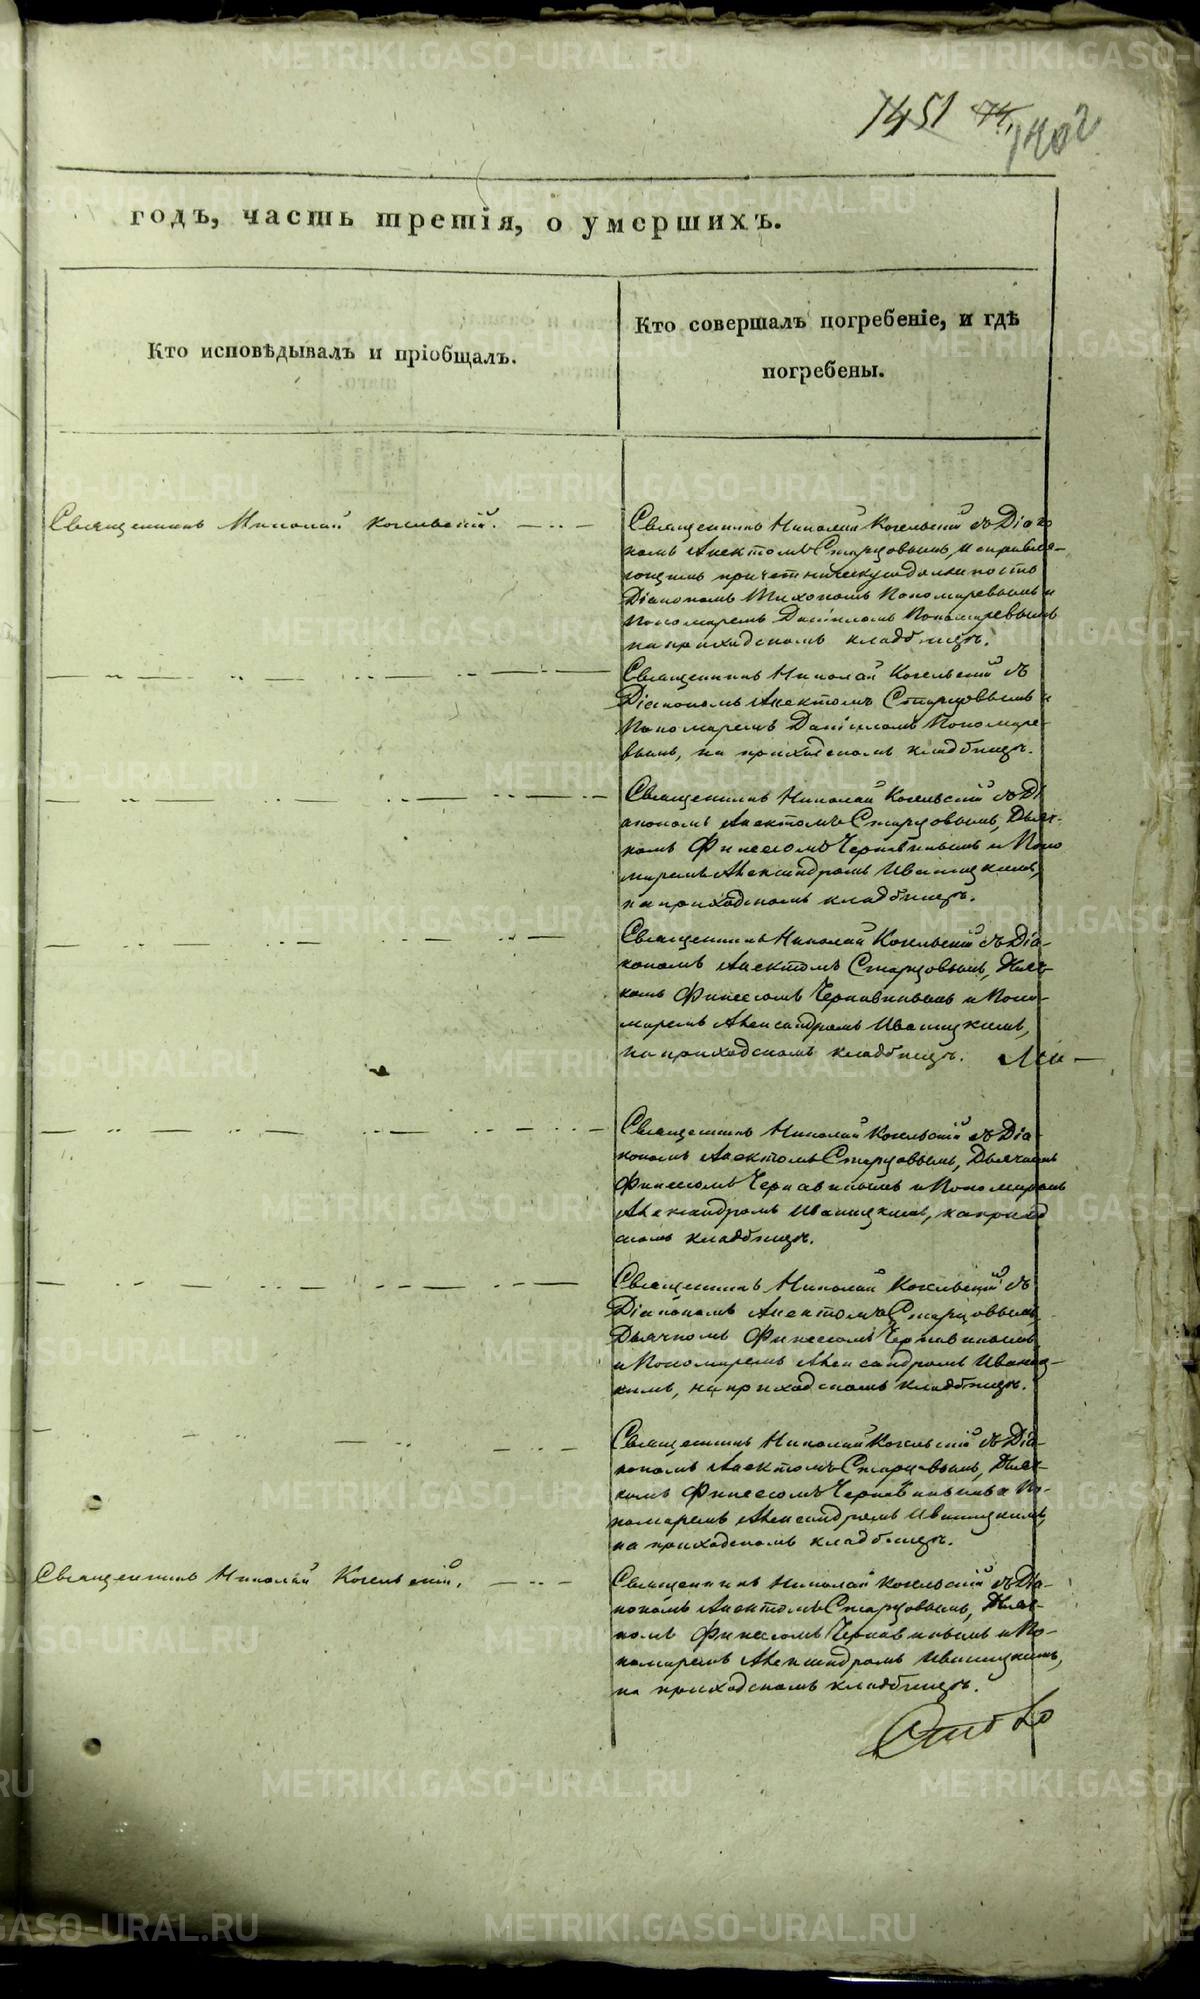 1451 74, 1402
годъ, часть третія, о умершихъ.
Кто исповѣдывалъ и пріобщалъ.
Кто совершалъ погребеніе, и гдѣ
погребены.
Священникъ Николай Когельскій.
Священникъ Николай Когельскій съ Діако
номъ Аектомъ Старцовымъ, и справля-
ющимъ причетническую должность
Діакономъ Тихономъ Пономаревымъ и
Пономаремъ Даніиломъ Пономаревымъ
на приходскомъ кладбищѣ.
Священникъ Николай Когельскій съ
Діакономъ Аектомъ Старцовымъ и
Пономаремъ Даніиломъ Пономаре-
вымъ, на приходскомъ кладбищѣ.
Священникъ Николай Когельскій съ Ді
акономъ Аектомъ Старцовымъ, Дьяч-
комъ Финеесомъ Чернавинымъ и Поно
маремъ Александромъ Иваницкимъ,
на приходскомъ кладбищѣ.
Священникъ Николай Когельскій съ Діа-
кономъ Аектомъ Старцовымъ, Дьяч-
комъ Финеесомъ Чернавинымъ и Поно-
маремъ Александромъ Иваницкимъ,
на приходскомъ кладбищѣ.
Священникъ Николай Когельскій съ Діа-
кономъ Аектомъ Старцовымъ, Дьячкомъ
Финеесомъ Чернавинымъ и Пономаремъ
Александромъ Иваницкимъ, на приход
скомъ кладбищѣ.
Священникъ Николай Когельскій съ
Діакономъ Аектомъ Старцовымъ,
Дьячкомъ Финеесомъ Чернавинымъ
и Пономаремъ Александромъ Иваниц-
кимъ, на приходскомъ кладбищѣ.
Священникъ Николай Когельскій съ Діа-
кономъ Аектомъ Старцовымъ, Дьяч-
комъ Финеесомъ Чернавинымъ и По-
номаремъ Александромъ Иваницкимъ,
на приходскомъ кладбищѣ.
Священникъ Николай Когельскій.
Священникъ Николай Когельскій съ Діа-
кономъ Аектомъ Старцовымъ, Дьяч-
комъ Финеесомъ Чернавинымъ и По-
номаремъ Александромъ Иваницкимъ,
на приходскомъ кладбищѣ.